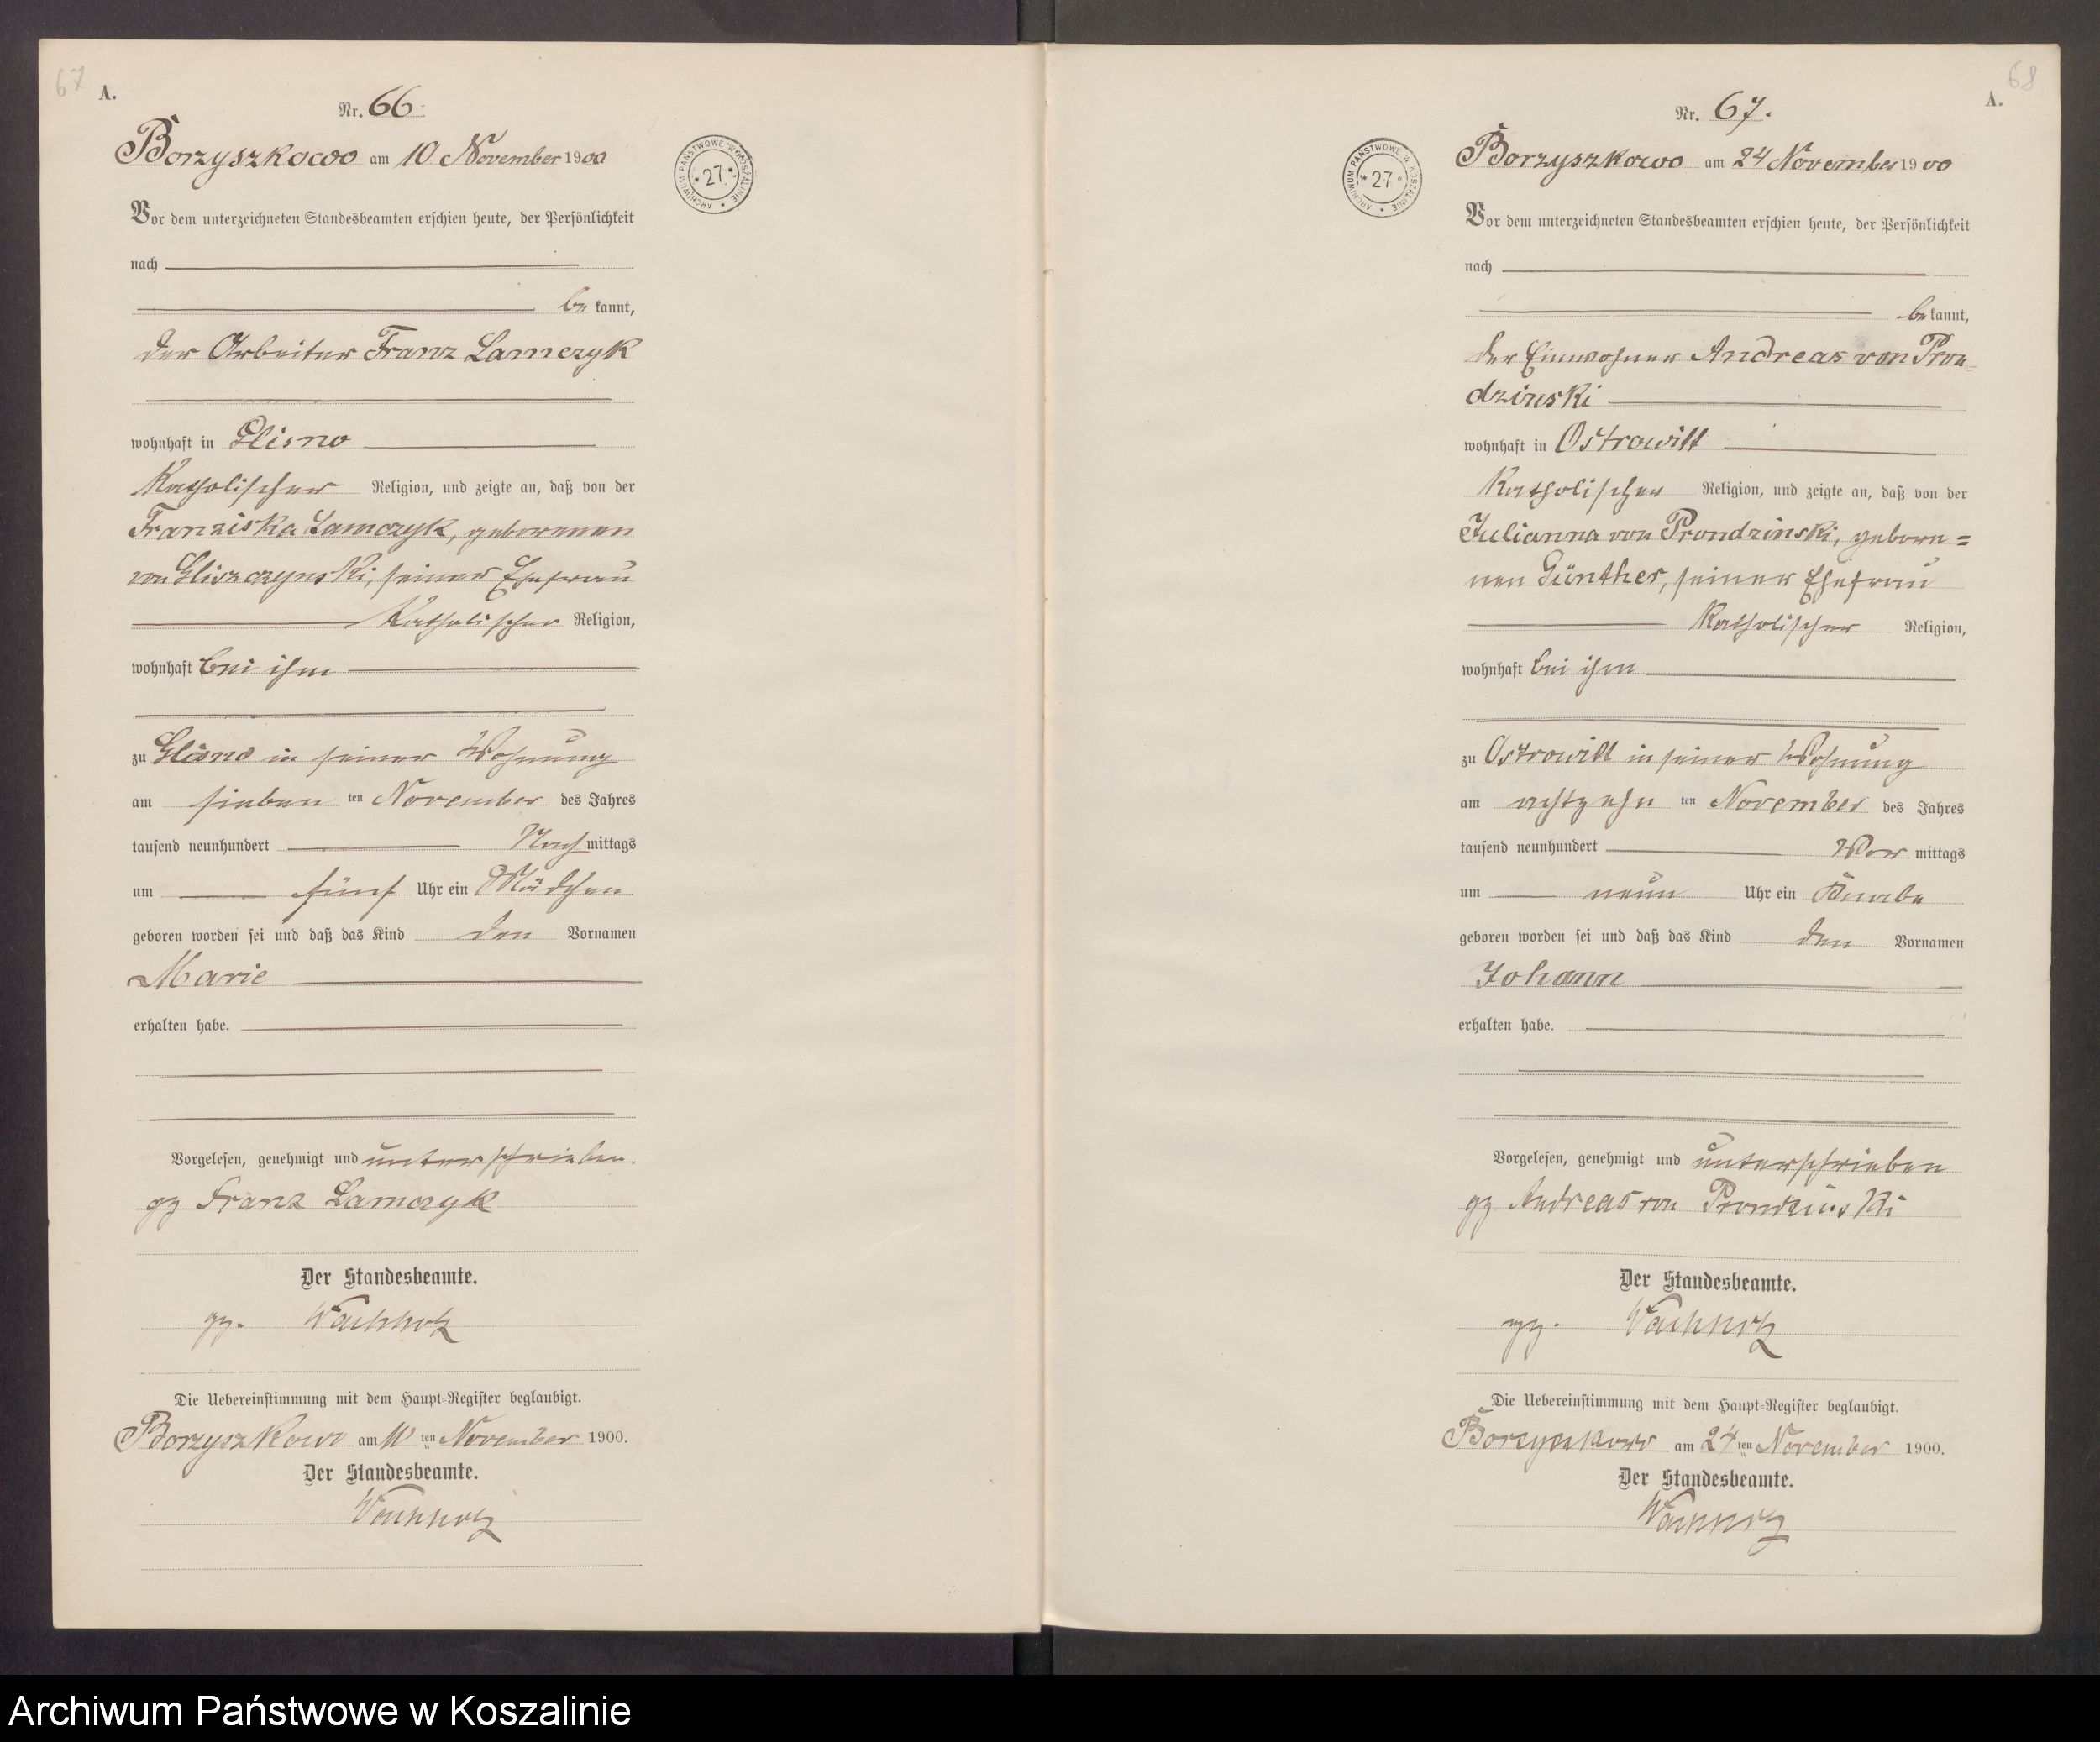 67
A.
Nr. 66.
Borzyszkowo am 10 November 1900
ARCHIWUM PAŃSTWOWE W KOSZALINIE
* 27 *
Vor dem unterzeichneten Standesbeamten erschien heute, der Persönlichkeit
nach
be kannt,
der Arbeiter Franz Lamczyk
wohnhaft in Glisno
Katholischer Religion, und zeigte an, daß von der
Franziska Lamczyk, geborenen
von Gliszczynski, seiner Ehefrau
Katholischer Religion,
wohnhaft bei ihm
zu Glisno in seiner Wohnung
am sieben ten November des Jahres
tausend neunhundert Nach mittags
um fünf Uhr ein Mädchen
geboren worden sei und daß das Kind den Vornamen
Marie
erhalten habe.
Vorgelesen, genehmigt und unterschrieben
gz Franz Lamczyk
Der Standesbeamte.
gz. Wachholz
Die Uebereinstimmung mit dem Haupt-Register beglaubigt.
Borzyszkowo am 10 ten November 1900.
Der Standesbeamte.
Wachholz
68
A.
Nr. 67.
Borzyszkowo am 24 November 1900
ARCHIWUM PAŃSTWOWE W KOSZALINIE
* 27 *
Vor dem unterzeichneten Standesbeamten erschien heute, der Persönlichkeit
nach
be kannt,
der Einwohner Andreas von Pron=
dzinski
wohnhaft in Ostrowitt
Katholischer Religion, und zeigte an, daß von der
Julianna von Prondzinski, gebore=
nen Günther, seiner Ehefrau
Katholischer Religion,
wohnhaft bei ihm
zu Ostrowitt in seiner Wohnung
am achtzehn ten November des Jahres
tausend neunhundert Vor mittags
um neun Uhr ein Knabe
geboren worden sei und daß das Kind den Vornamen
Johann
erhalten habe.
Vorgelesen, genehmigt und unterschrieben
gz Andreas von Prondzinski
Der Standesbeamte.
gz. Wachholz
Die Uebereinstimmung mit dem Haupt-Register beglaubigt.
Borzyszkowo am 24 ten November 1900.
Der Standesbeamte.
Wachholz
Archiwum Państwowe w Koszalinie